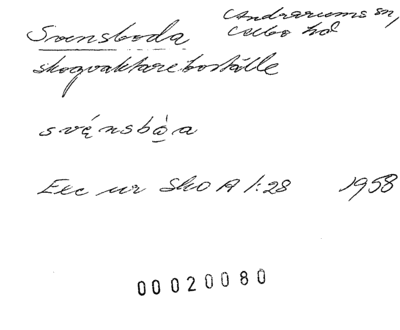 Svensboda
Andrarums sn,
Albo hd
skogvaktareboställe
svę́nsbo̱a
Exc ur SkO A 1:28 1958
00020080